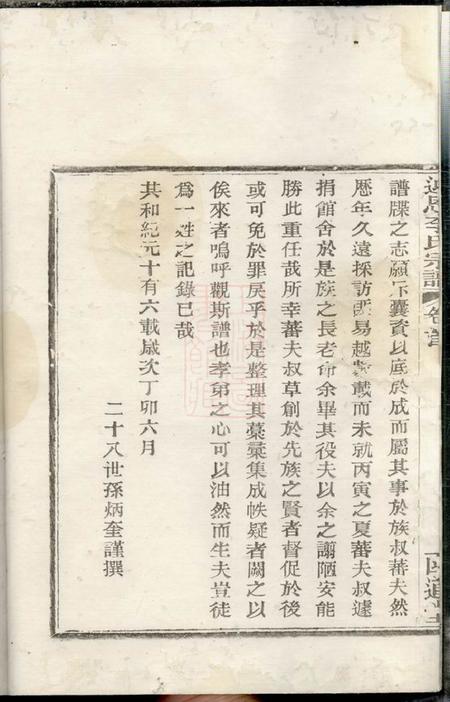 李氏宗譜 卷首
譜牒之志願斥囊資以底於成而屬其事於族叔蕃夫然
歷年久遠探訪匪易越數載而未就丙寅之夏蕃夫叔遽
捐館舍於是族之長老命余畢其役夫以余之謭陋安能
勝此重任哉所幸蕃夫叔草創於先族之賢者督促於後
或可免於罪戾乎於是整理其藁彙集成帙疑者闕之以
俟來者嗚呼觀斯譜也孝弟之心可以油然而生夫豈徒
為一姓之記錄已哉
共和紀元十有六載歲次丁卯六月
二十八世孫炳奎謹撰